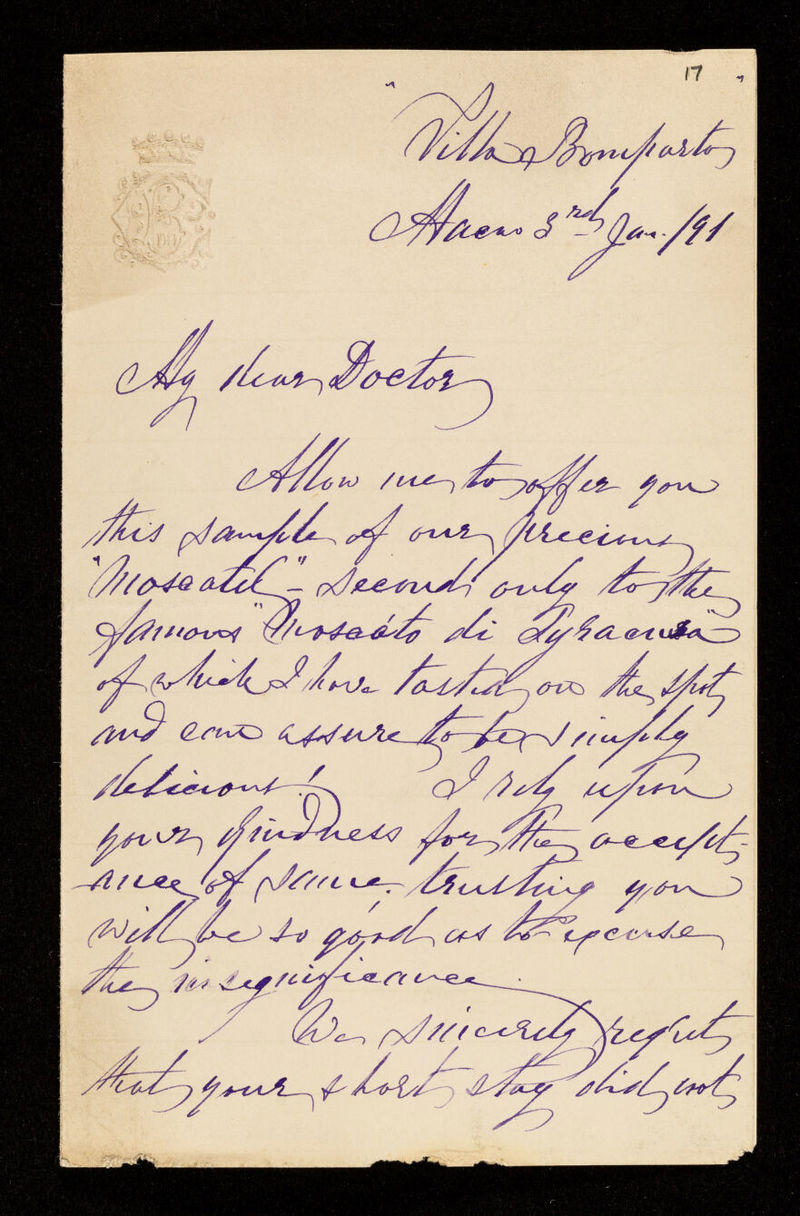 17
" Villa Boniparto "
3rd Jan. /91
My dear Doctor
Allow me to offer you
this sample of our precious
"Moscatel" - second only to the
famous "Moscáto di Syracusa"
of which I have tasted on the spot
and can assure to be simply
delicious! I rely upon
your kindness for the accept-
ance of same, trusting you
will be so good as to excuse
the insignificance.
We sincerely regret
that your short stay did not